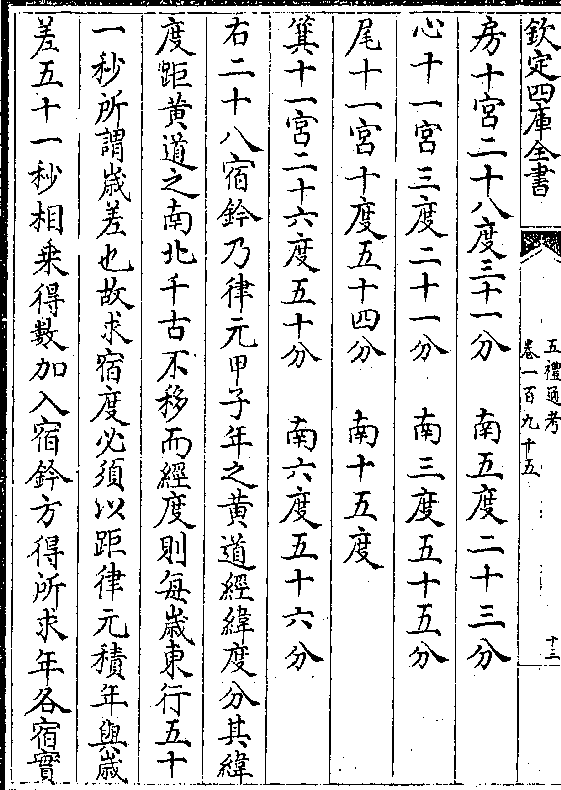 欽定四庫全書
五禮通考
卷一百九十五
十三
房十宮二十八度三十一分　南五度二十三分
心十一宮三度二十一分　南三度五十五分
尾十一宮十度五十四分　南十五度
箕十一宮二十六度五十分　南六度五十六分
右二十八宿鈐乃律元甲子年之黄道經緯度分其緯
度距黄道之南北千古不移而經度則每歳東行五十
一秒所謂歳差也故求宿度必須以距律元積年與歳
差五十一秒相乗得數加入宿鈐方得所求年各宿實